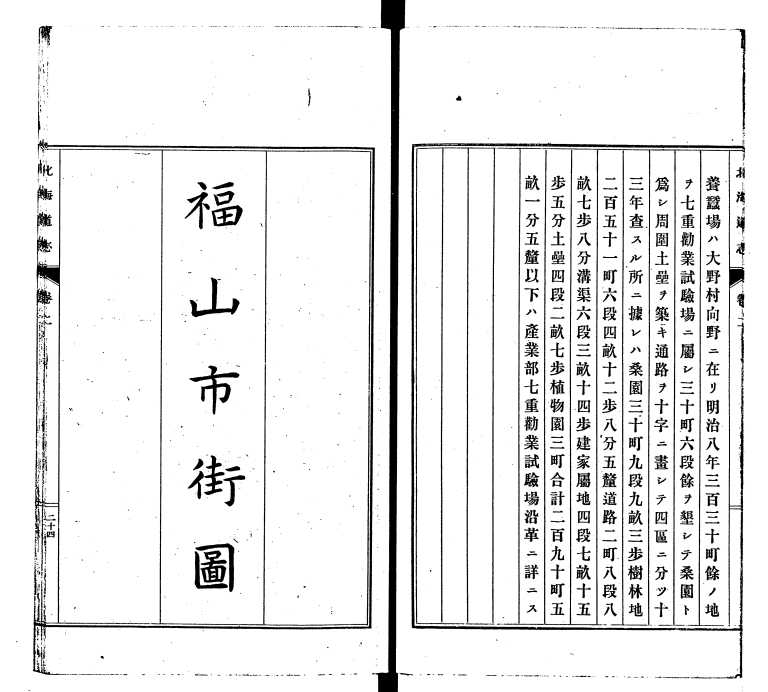 養蠶場ハ大野村向野ニ在リ明治八年三百三十町餘ノ地
ヲ七重勸業試驗場ニ屬シ三十町六段餘ヲ墾シテ桑園ト
爲シ周園土壘ヲ築キ通路ヲ十字ニ畫シテ四區ニ分ツ十
三年査スル所ニ據レハ桑園三十町九段九畝三步樹林地
二百五十一町六段四畝十二步八分五釐道路二町八段八
畝七步八分溝渠六段三畝十四步建家屬地四段七畝十五
步五分土壘四段二畝七步植物園三町合計二百九十町五
畝一分五釐以下ハ產業部七重勸業試驗場沿革ニ詳ニス
福山市街圖
北海道志
卷之二
二十四